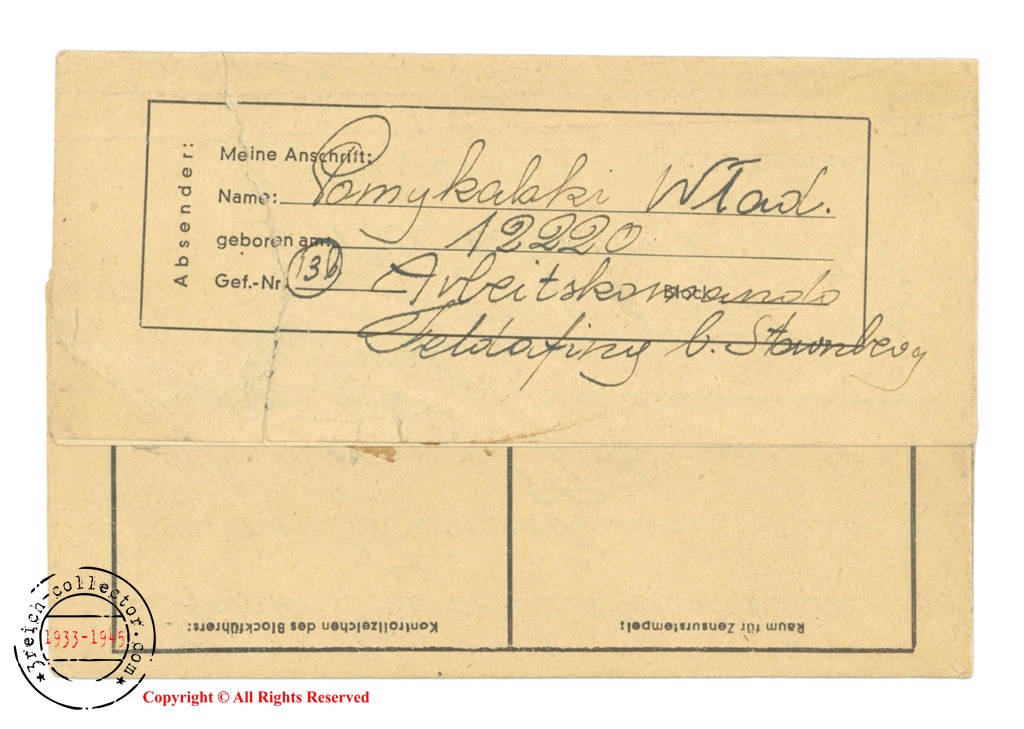 Absender:
Meine Anschrift:
Name: Pomykalski Wład.
geboren am: 12220
Gef.-Nr. (13b) Arbeitskomando Block
Feldafing b. Starnberg
Kontrollzeichen des Blockführers:
Raum für Zensurstempel:
3reich-collector.com
1933-1945
Copyright © All Rights Reserved